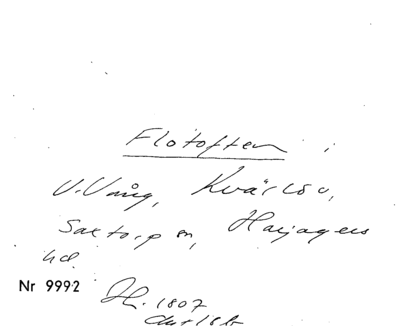 Flötoften i
V. Vång, Kvärlöv,
Saxtorp sn, Harjagers
hd.
Nr 9992
1807